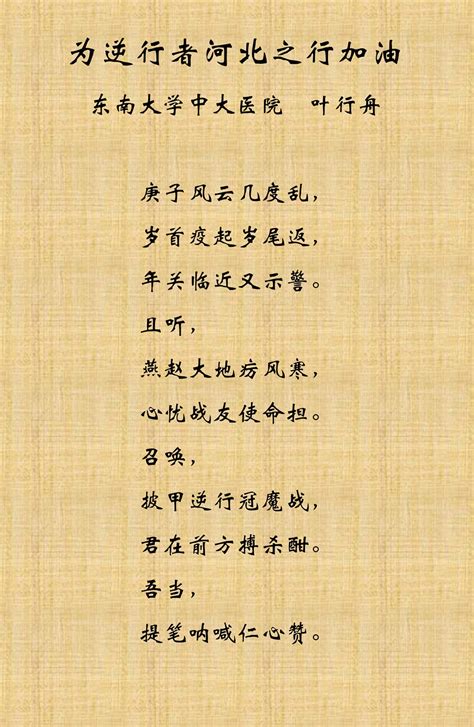 为逆行者河北之行加油
东南大学中大医院 叶行舟
庚子风云几度乱，
岁首疫起岁尾返，
年关临近又示警。
且听，
燕赵大地疠风寒，
心忧战友使命担。
召唤，
披甲逆行冠魔战，
君在前方搏杀酣。
吾当，
提笔呐喊仁心赞。